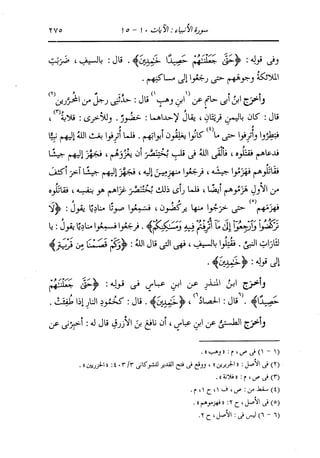 سورة الأنبياء : الآيات ١٠ - ١٥ ٢٧٥
وفى قوله : ﴿حَتَّىٰ جَعَلْنَٰهُمْ حَصِيدًا خَٰمِدِينَ﴾ . قال : بالسيف ، ضرَبت
الملائكةُ وجوهَهم حتى رجَعوا إلى مساكنِهم .
وأخرَج ابنُ أبى حاتمٍ عن (١)ابنِ وهبٍ(١) قال : حدَّثنى رجلٌ من المحرَّرين(٢)
قال : كان باليمنِ قريتان ، يقالُ لإحداهما : حضورُ . وللأخرى : قلابةُ(٣) ،
فبَطِروا وأُترِفوا حتى ما(٤) كانوا يُغلِقون أبوابَهم . فلما أُترِفوا بعَث اللهُ إليهم نبيًّا
فدعاهم فقتَلوه ، فألقَى اللهُ فى قلبِ بُخْتَنَصَّرَ أن يغزُوَهم ، فجهَّز إليهم جيشًا
فقاتَلوهم فهزَموا جيشَه ، فرجَعوا منهزِمين إليه ، فجهَّز إليهم جيشًا آخرَ أكثفَ
من الأولِ فهزَموهم أيضًا ، فلما رأى ذلك بُخْتَنَصَّرُ غزاهم هو بنفسِه ، فقاتَلوه
فهزَمهم(٥) حتى خرَجوا منها يركُضون ، فسمِعوا صوتًا مناديًا يقولُ : ﴿لَا
تَرْكُضُوا۟ وَٱرْجِعُوٓا۟ إِلَىٰ مَآ أُتْرِفْتُمْ فِيهِ وَمَسَٰكِنِكُمْ﴾ . فرجَعوا فسمِعوا مناديًا يقولُ : يا
لثاراتِ النبىِّ . فقُتِلوا بالسيفِ ، فهى التى قال اللهُ : ﴿وَكَمْ قَصَمْنَا مِن قَرْيَةٍ﴾
إلى قولِه : ﴿خَٰمِدِينَ﴾ .
وأخرَج ابنُ المنذرِ عن ابنِ عباسٍ فى قولِه : ﴿حَتَّىٰ جَعَلْنَٰهُمْ
حَصِيدًا﴾ . (٦)قال : الحصادُ(٦) ، ﴿خَٰمِدِينَ﴾ . قال : كخمودِ النارِ إذا طَفِئت .
وأخرَج الطستىُّ عن ابنِ عباسٍ ، أن نافعَ بنَ الأزرقِ قال له : أخبِرْنى عن
(١ - ١) فى ص ، م : « وهب » .
(٢) فى الأصل : « الحريرين » ، ووقع فى فتح القدير للشوكانى ٣/ ٤٠٣ : « الخزريين » .
(٣) فى ص ، م : « فلانة » .
(٤) سقط من : ص ، ف ١ ، ح ١ ، م .
(٥) فى الأصل ، ح ٢ : « فهزموهم » .
(٦ - ٦) ليس فى : الأصل ، ح ٢ .